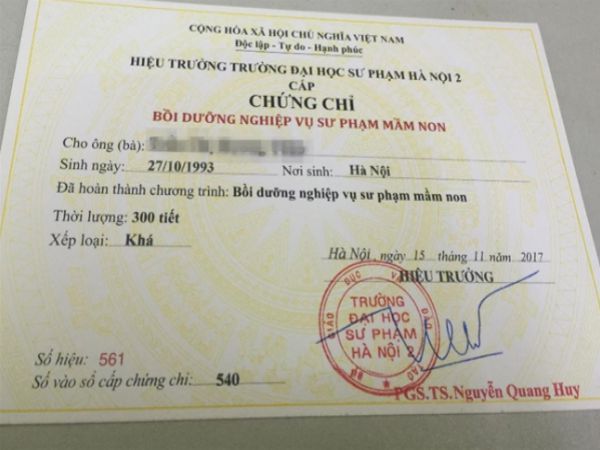 CỘNG HÒA XÃ HỘI CHỦ NGHĨA VIỆT NAM
Độc lập - Tự do - Hạnh phúc
HIỆU TRƯỞNG TRƯỜNG ĐẠI HỌC SƯ PHẠM HÀ NỘI 2
CẤP
CHỨNG CHỈ
BỒI DƯỠNG NGHIỆP VỤ SƯ PHẠM MẦM NON
Cho ông (bà):
Sinh ngày: 27/10/1993 Nơi sinh: Hà Nội
Đã hoàn thành chương trình: Bồi dưỡng nghiệp vụ sư phạm mầm non
Thời lượng: 300 tiết
Xếp loại: Khá
Hà Nội, ngày 15 tháng 11 năm 2017
HIỆU TRƯỞNG
BỘ GIÁO DỤC VÀ ĐÀO TẠO
TRƯỜNG
ĐẠI HỌC
SƯ PHẠM
HÀ NỘI 2
Số hiệu: 561
Số vào sổ cấp chứng chỉ: 540
PGS.TS.Nguyễn Quang Huy